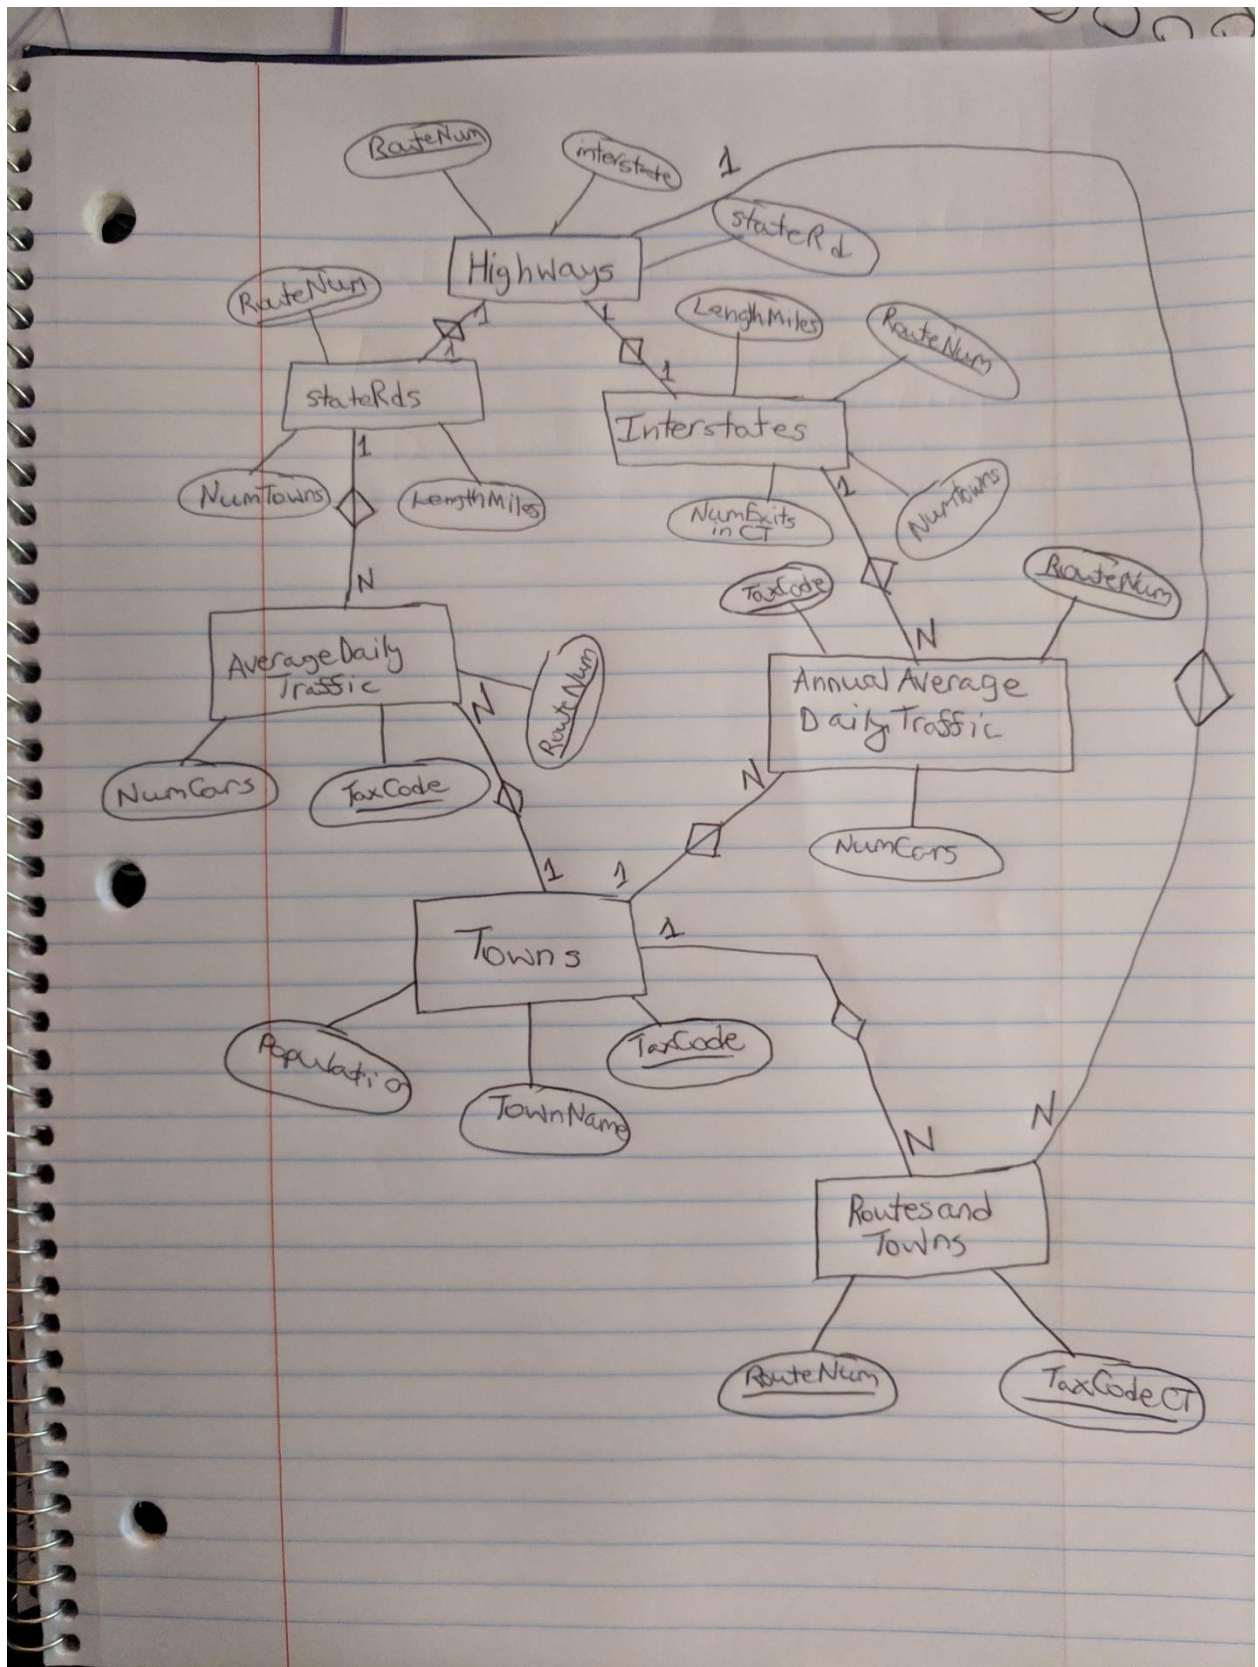 RouteNum
interstate
1
stateRd
Highways
RouteNum
1
1
LengthMiles
RouteNum
1
1
stateRds
Interstates
1
NumTowns
LengthMiles
1
NumExits
in CT
NumTowns
N
TaxCode
RouteNum
N
AverageDaily
Traffic
RouteNum
N
Annual Average
Daily Traffic
NumCars
TaxCode
N
NumCars
1
1
Towns
1
Populatio
TownName
TaxCode
N
N
Routesand
Towns
RouteNum
TaxCodeCT